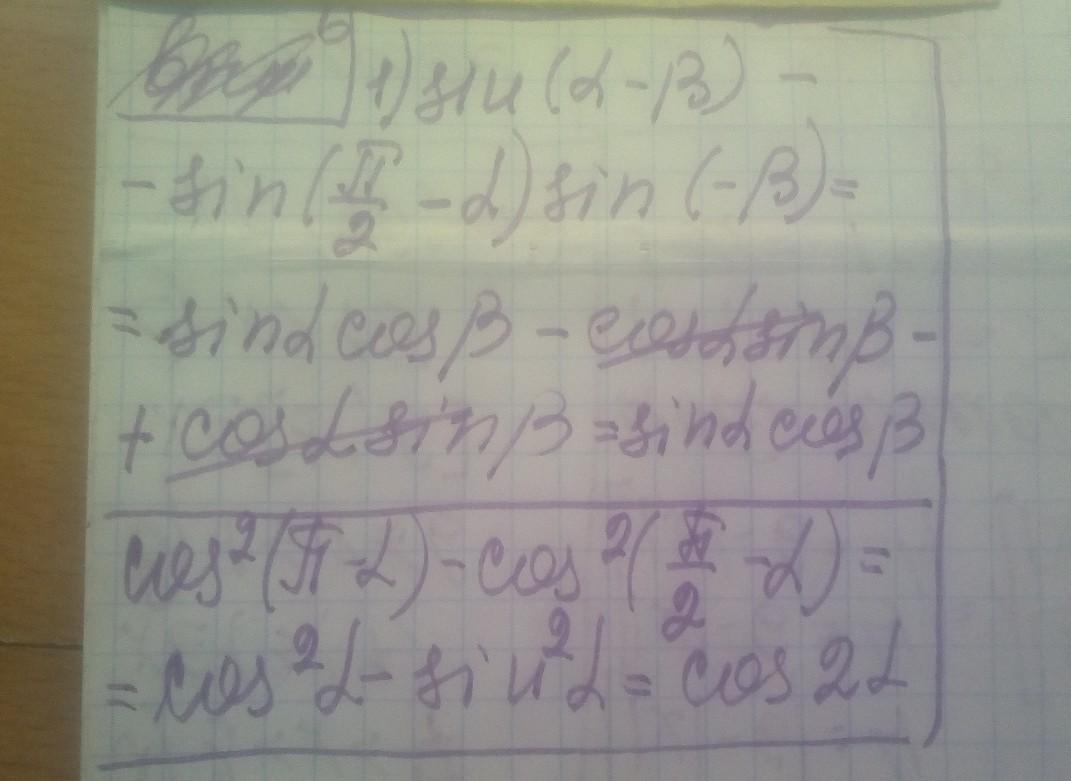 1) sin (α - β) -
- sin (π/2 - α) sin (-β) =
= sinα cosβ - cosα sinβ -
+ cosα sinβ = sinα cosβ
cos²(π - α) - cos²(π/2 - α) =
= cos²α - sin²α = cos 2α